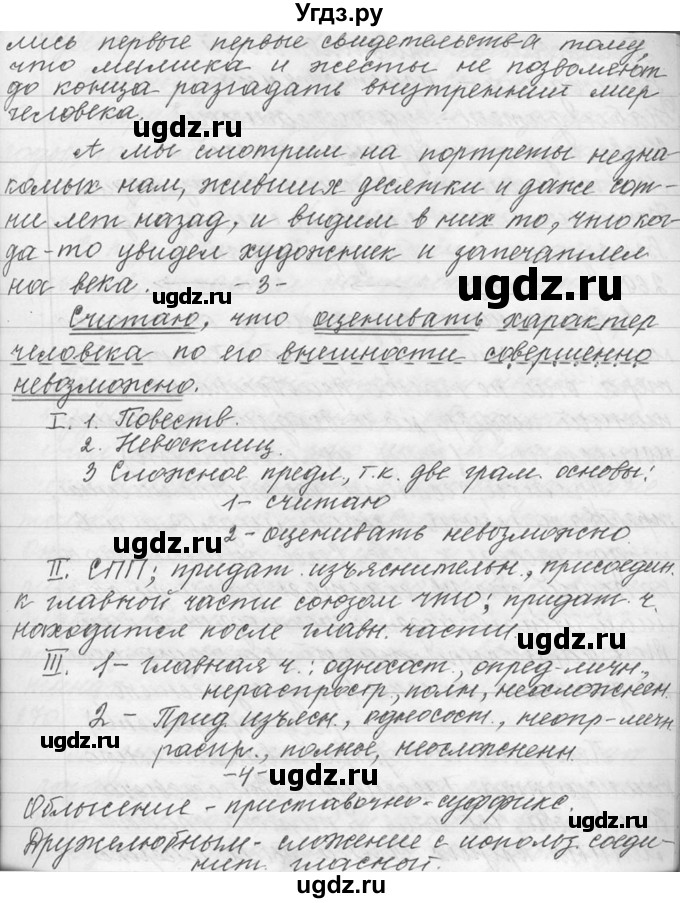 Угдз.ру
лись первые первые свидетельства тому,
что мимика и жесты не позволяют
до конца разгадать внутренний мир
человека.
ugdz.ru ugdz.ru
А мы смотрим на портреты незна-
комых нам, живших десятки и даже сот-
ни лет назад, и видим в них то, что ког-
да-то увидел художник и запечатлел
на века. -3-
ugdz.ru ugdz.ru
Считаю, что оценивать характер
человека по его внешности совершенно
невозможно.
ugdz.ru
I. 1. Повеств.
2. Невосклиц.
ugdz.ru
3 Сложное предл., т.к. две грам. основы:
1- считаю
2- оценивать невозможно.
ugdz.ru ugdz.ru
II. СПП; придат. изъяснительн., присоедин.
к главной части союзом что; придат. ч.
находится после главн. части.
ugdz.ru
III. 1- главная ч.: односост., опред-личн.,
нераспростр., полн., неосложнен.
2 - Прид. изъясн., односост., неопр-личн.
распр., полное, неосложненн.
ugdz.ru ugdz.ru
-4-
ugdz.ru
Облысение - приставочно-суффикс.
ugdz.ru ugdz.ru
Дружелюбным - сложение с использ. соеди-
нит. гласной.
ugdz.ru